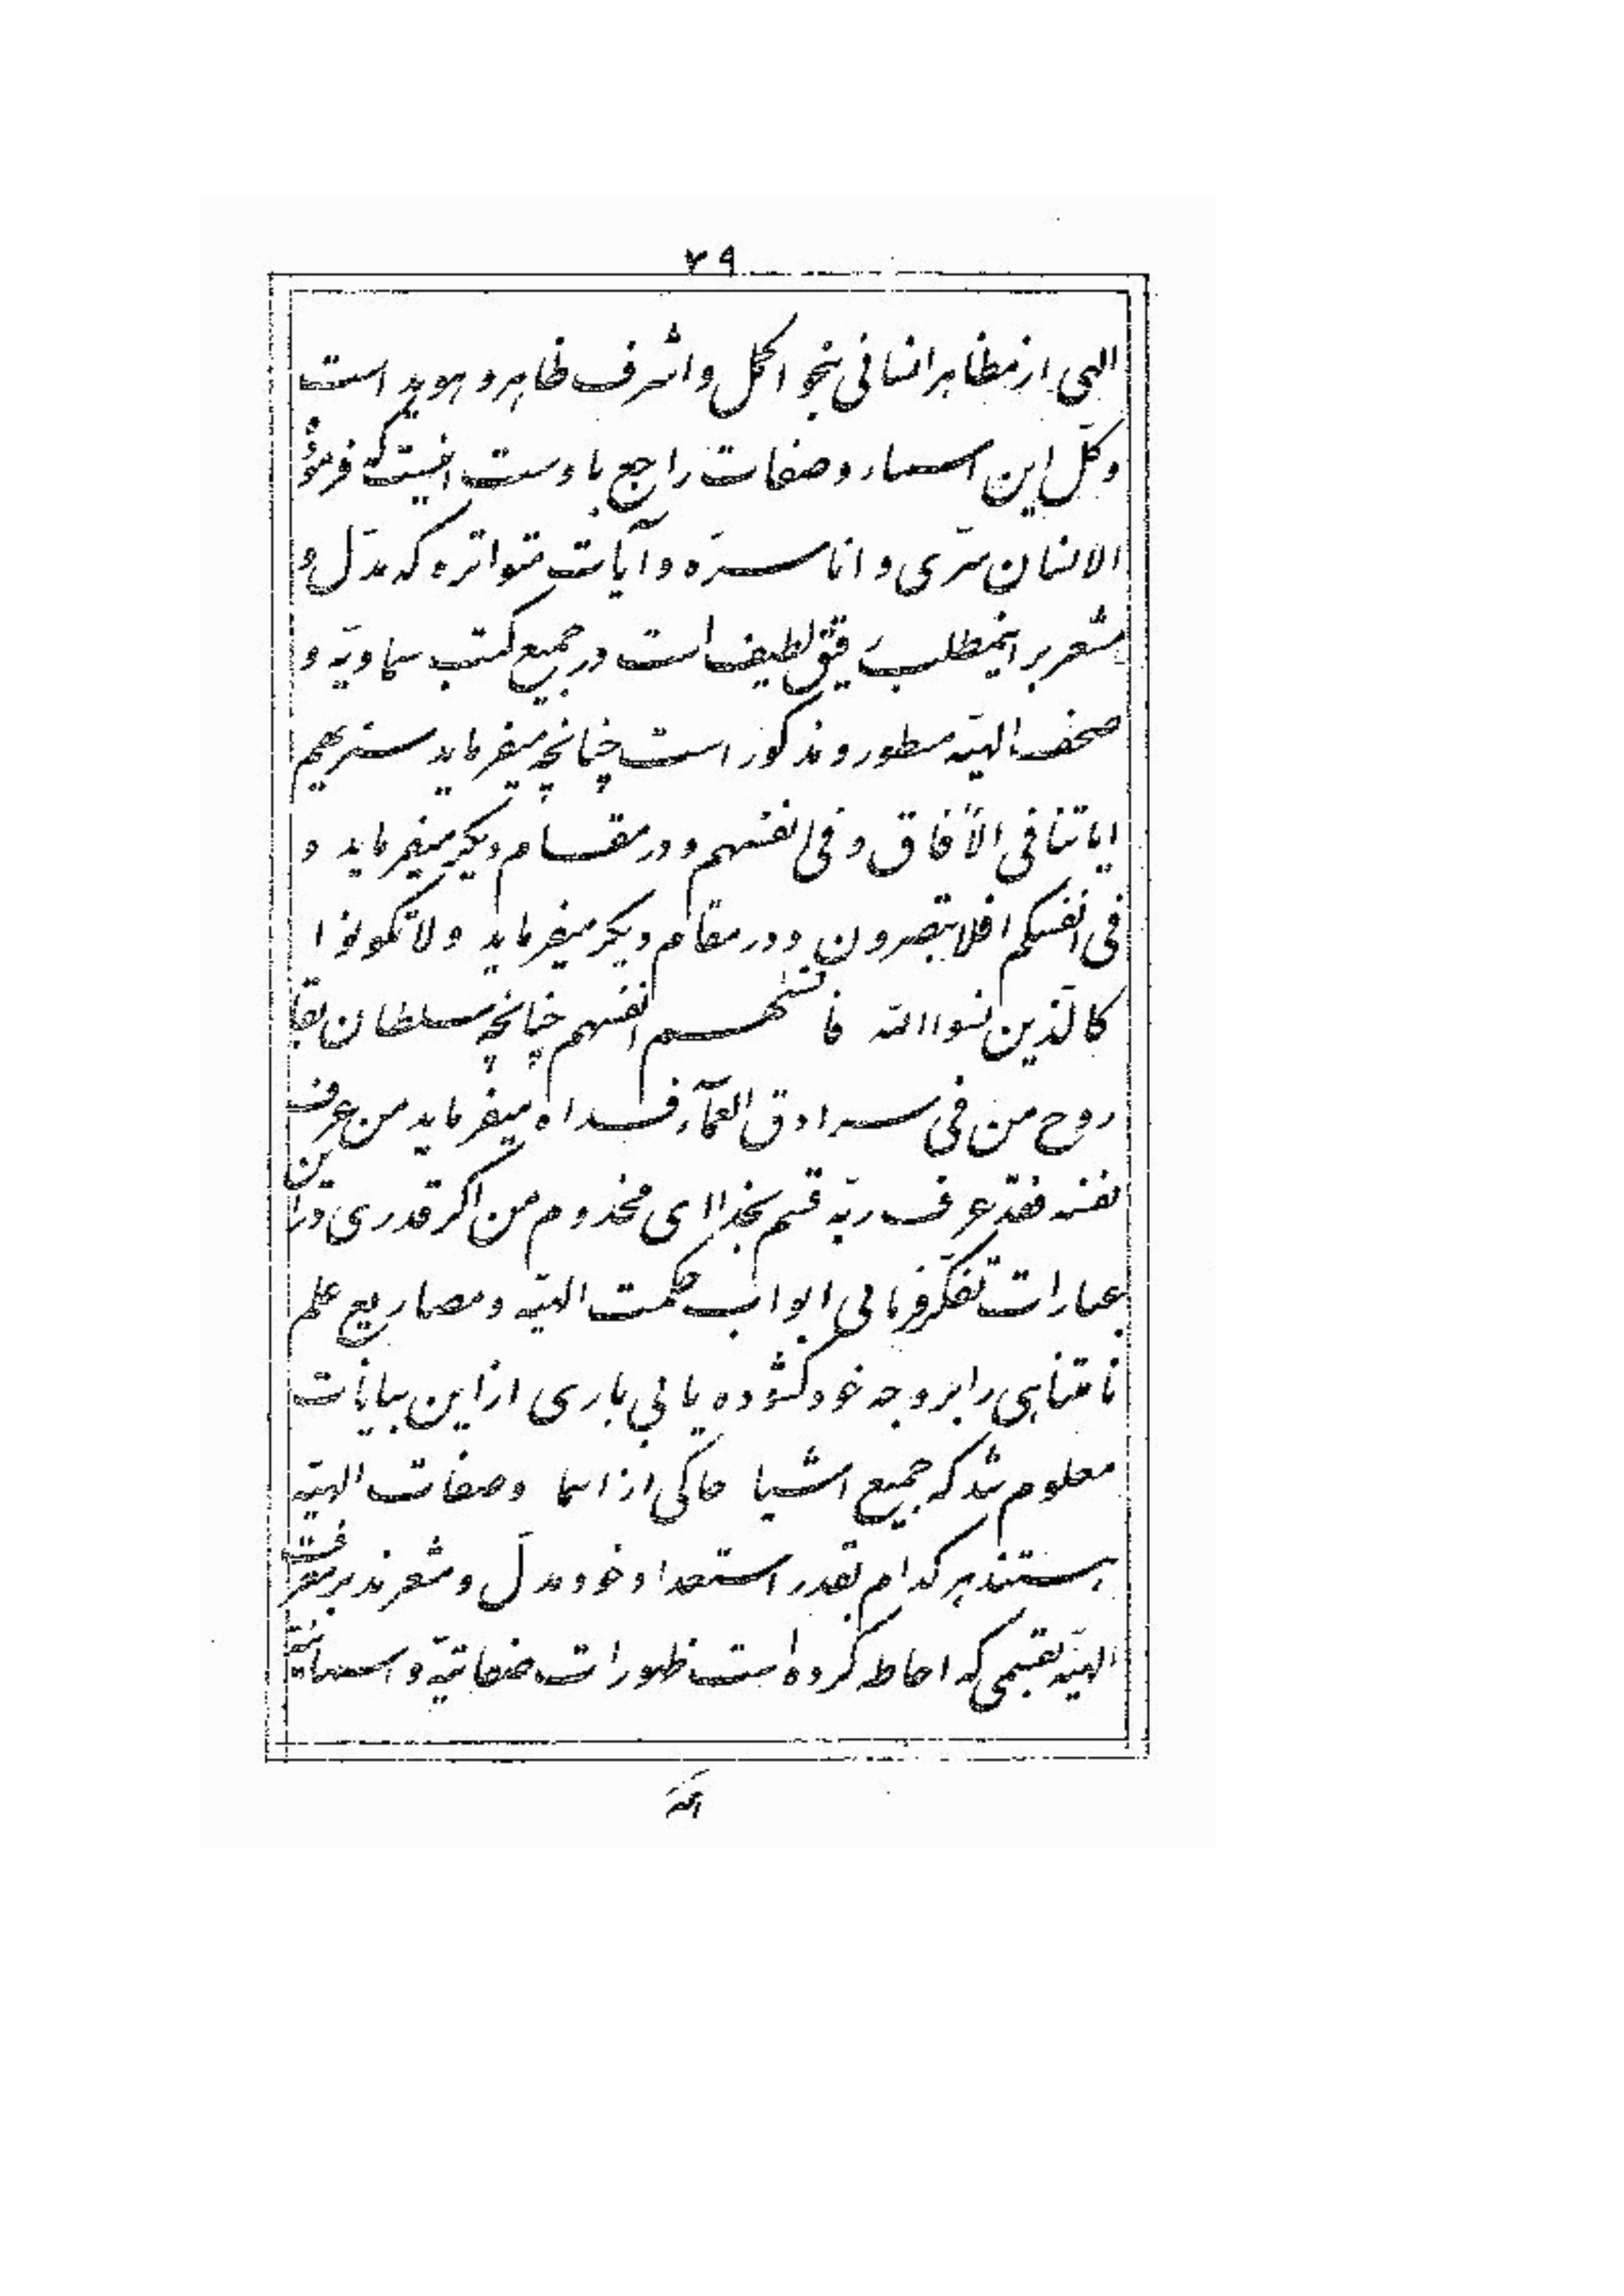 ۷۹
الهی از مظاهر انسانی بنحو اکمل و اشرف ظاهر و هویدا است
و کلّ این اسماء و صفات راجع باوست اینست که فرموده
الانسان سرّی و انا سرّه و آیات متواتره که مدلّ و
مشعر بر اینمطلب دقیق لطیف است در جمیع کتب سماویّه و
صحف الهیّه مسطور و مذکور است چنانچه میفرماید سنریهم
ایاتنا فی الآفاق و فی انفسهم و در مقام دیگر میفرماید و
فی انفسکم افلا تبصرون و در مقام دیگر میفرماید و لا تکونوا
کالّذین نسوا اللّه فانسٰهم انفسهم چنانچه سلطان بقا
روح من فی سرادق العمآء فداه میفرماید من عرف
نفسه فقد عرف ربّه قسم بخدا ای مخدوم من اگر قدری در این
عبارات تفکّر فرمائی ابواب حکمت الهیّه و مصاریع علم
نامتناهی را بر وجه خود گشوده یابی باری از این بیانات
معلوم شد که جمیع اشیا حاکی از اسما و صفات الهیّه
هستند هر کدام بقدر استعداد خود مدلّ و مشعرند بر معرفت
الهیّه بقسمی که احاطه کرده است ظهورات صفاتیّه و اسمائیّه